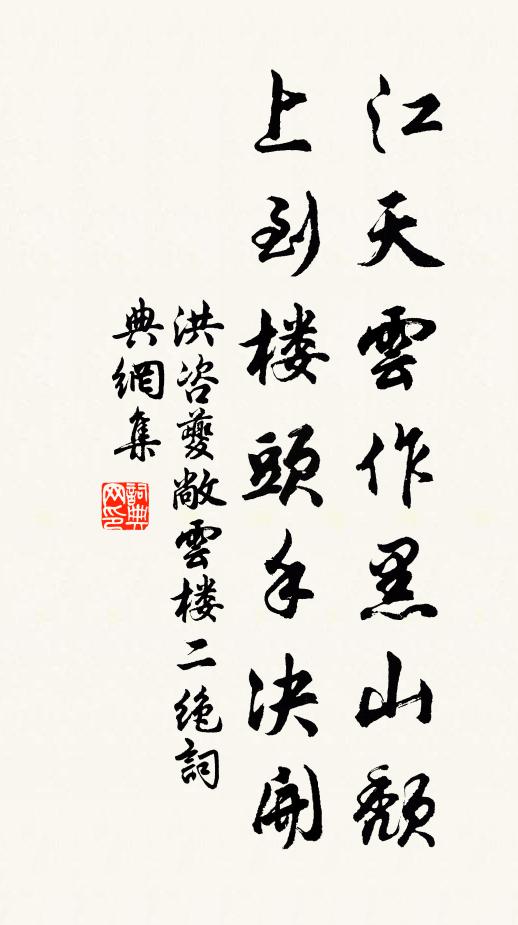 江天雲作黑山頹
上到楼頭手决開
洪咨夔敞雲楼二绝詞
典網集
詞典网印